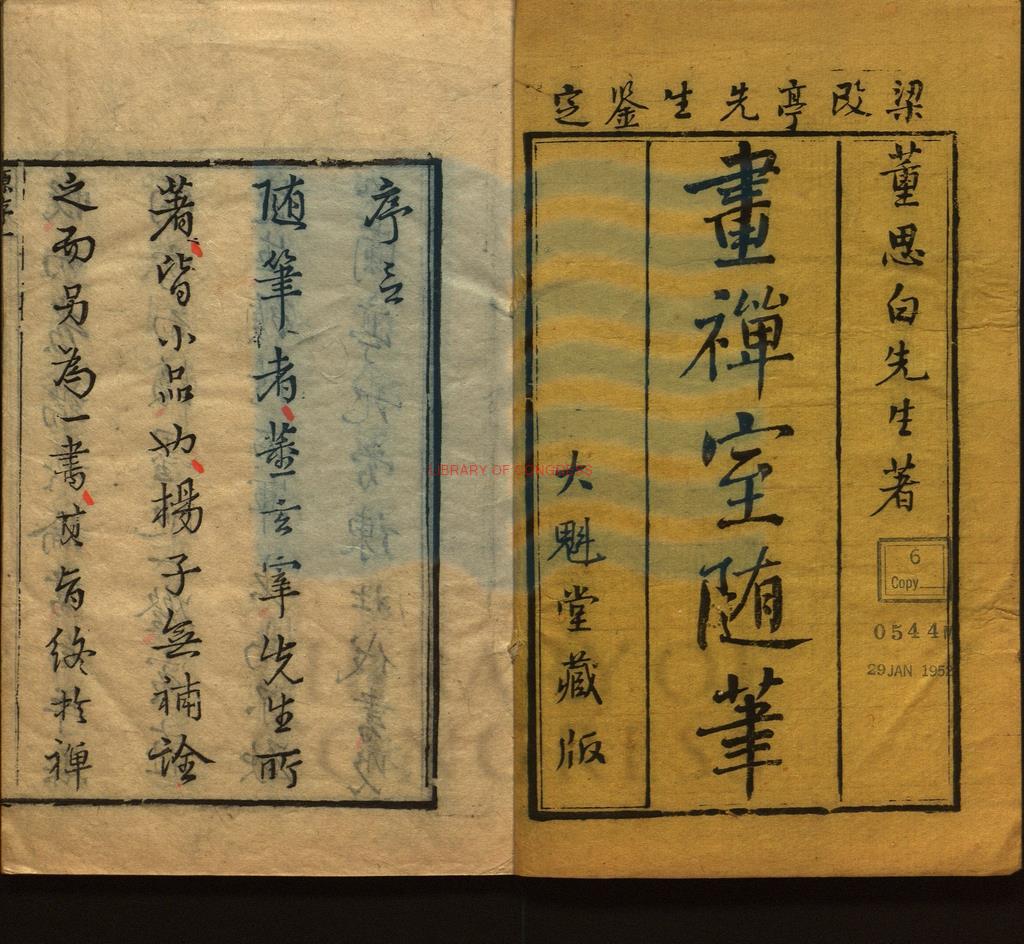 梁改亭先生鉴定
董思白先生著
畫禪室随筆
大魁堂藏版
6
Copy
0544
29JAN 1952
LIBRARY OF CONGRESS
序言
随筆者董玄宰先生所
著皆小品也楊子無補詮
之而另為一書其旨終於禅